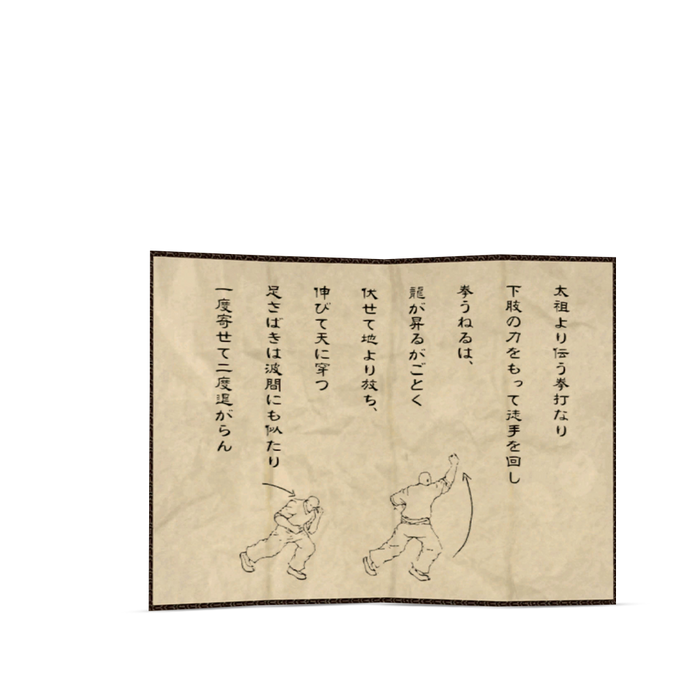 太祖より伝う拳打なり
下肢の力をもって徒手を回し
拳うねるは、
龍が昇るがごとく
伏せて地より放ち、
伸びて天に穿つ
足さばきは波間にも似たり
一度寄せて二度退がらん